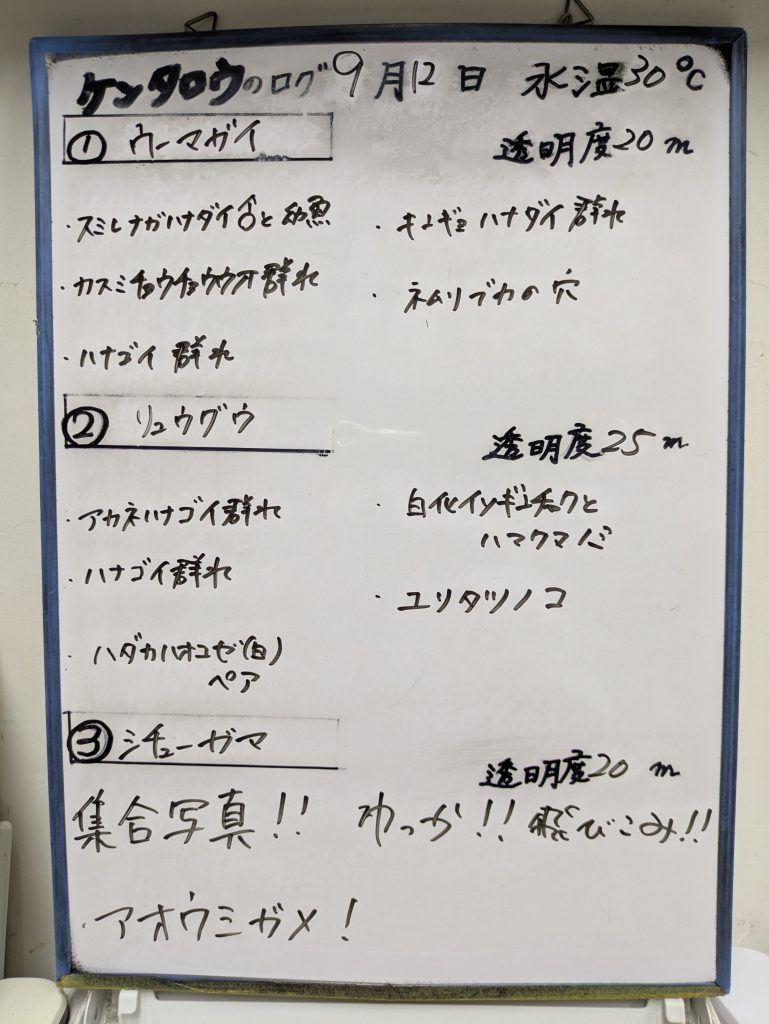 ケンタロウのログ 9月12日 水温30℃
① ウーマガイ
透明度20m
・スミレナガハナダイ♂と幼魚
・キンギョハナダイ群れ
・カスミチョウチョウウオ群れ
・ネムリブカの穴
・ハナゴイ群れ
② リュウグウ
透明度25m
・アカネハナゴイ群れ
・白化イソギンチャクと
ハマクマノミ
・ハナゴイ群れ
・ユリタツノコ
・ハダカハオコゼ(白)
ペア
③ シチューガマ
透明度20m
集合写真!! わっか!! 飛びこみ!!
・アオウミガメ!